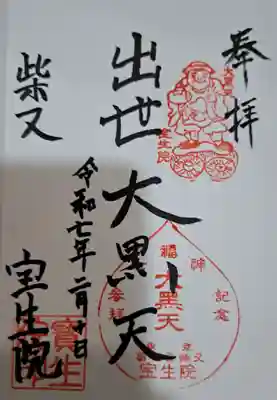 奉拝
大黒天
宝生院
出世大黒天
福
大黒天
参拝
記念
宝生院
柴又
令和七年二月十日
宝生院
寳生